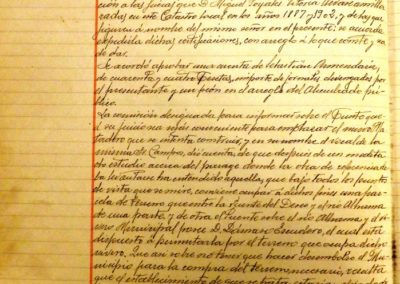 ción a las fincas que D. Miguel Poyales Vitoria lleva amilla-
radas en este Catastro local en los años 1887 y 1902, y de hay que
figuran á nombre del mismo señor en el presente; se acuerda
expedir la dichas certificaciones, con arreglo á lo que conste, y
de dar.
Se acordó aprobar una cuenta de Sebastián Armendáriz,
de cuarenta y cuatro Pesetas, importe de jornales devengados por
el presentante y un peón en el arreglo del Alumbrado pú-
blico.
La comisión designada para informar sobre el Punto que
á su juicio sea más conveniente para emplazar el nuevo Ma-
tadero que se intenta construir, y en su nombre el vocal de la
misma Sr. Campo, dió cuenta de que después de un medita-
do estudio acerca del paraje donde la obra de referencia de-
ba levantarse ha entendido aquella, que bajo todos los puntos
de vista que se mire, conviene ocupar á dichos fines una par-
cela de terreno que entre la Fuente del Deso y el río Alhama
de una parte, y de otra el Puente sobre el río Alhama, y el vi-
vero Municipal posee D. Dámaso Escudero, el cual está
dispuesto á permutarla por el terreno que ocupa dicho
vivero. Que así sobre no tener que hacer desembolso el Mu-
nicipio para la compra del terreno necesario, resulta
que el establecimiento de que se trata estaría